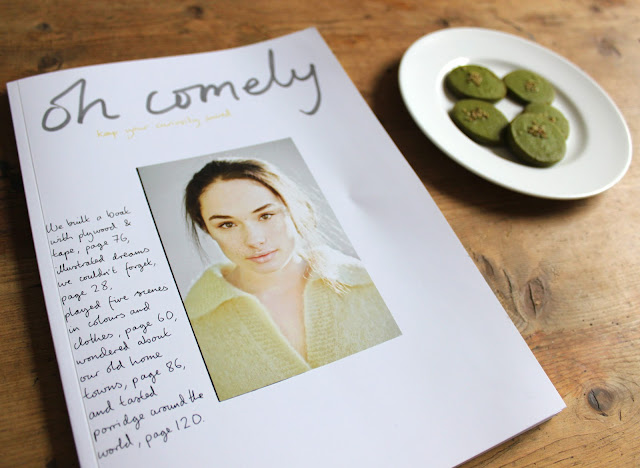 oh comely
keep your curiosity sacred
We built a boat
with plywood &
tape, page 76,
illustrated dreams
we couldn't forget,
page 28,
played five scenes
in colours and
clothes, page 60,
wondered about
our old home
towns, page 86,
and tasted
porridge around the
world, page 120.